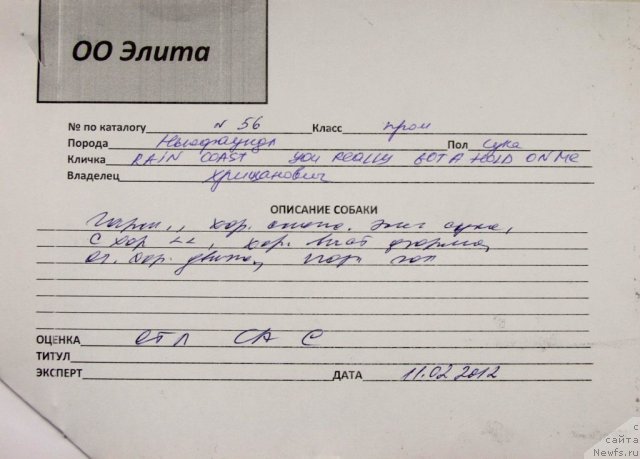 ОО Элита
№ по каталогу N 56 Класс пром
Порода Ньюфаундл Пол сука
Кличка RAIN COAST YOU REALLY GOT A HOLD ON ME
Владелец Хрищанович
ОПИСАНИЕ СОБАКИ
хор. сука,
с хор хор. форма,
хор. движ,
ОЦЕНКА ОТЛ САС
ТИТУЛ
ЭКСПЕРТ ДАТА 11.02.2012
с
сайта
Newfs.ru